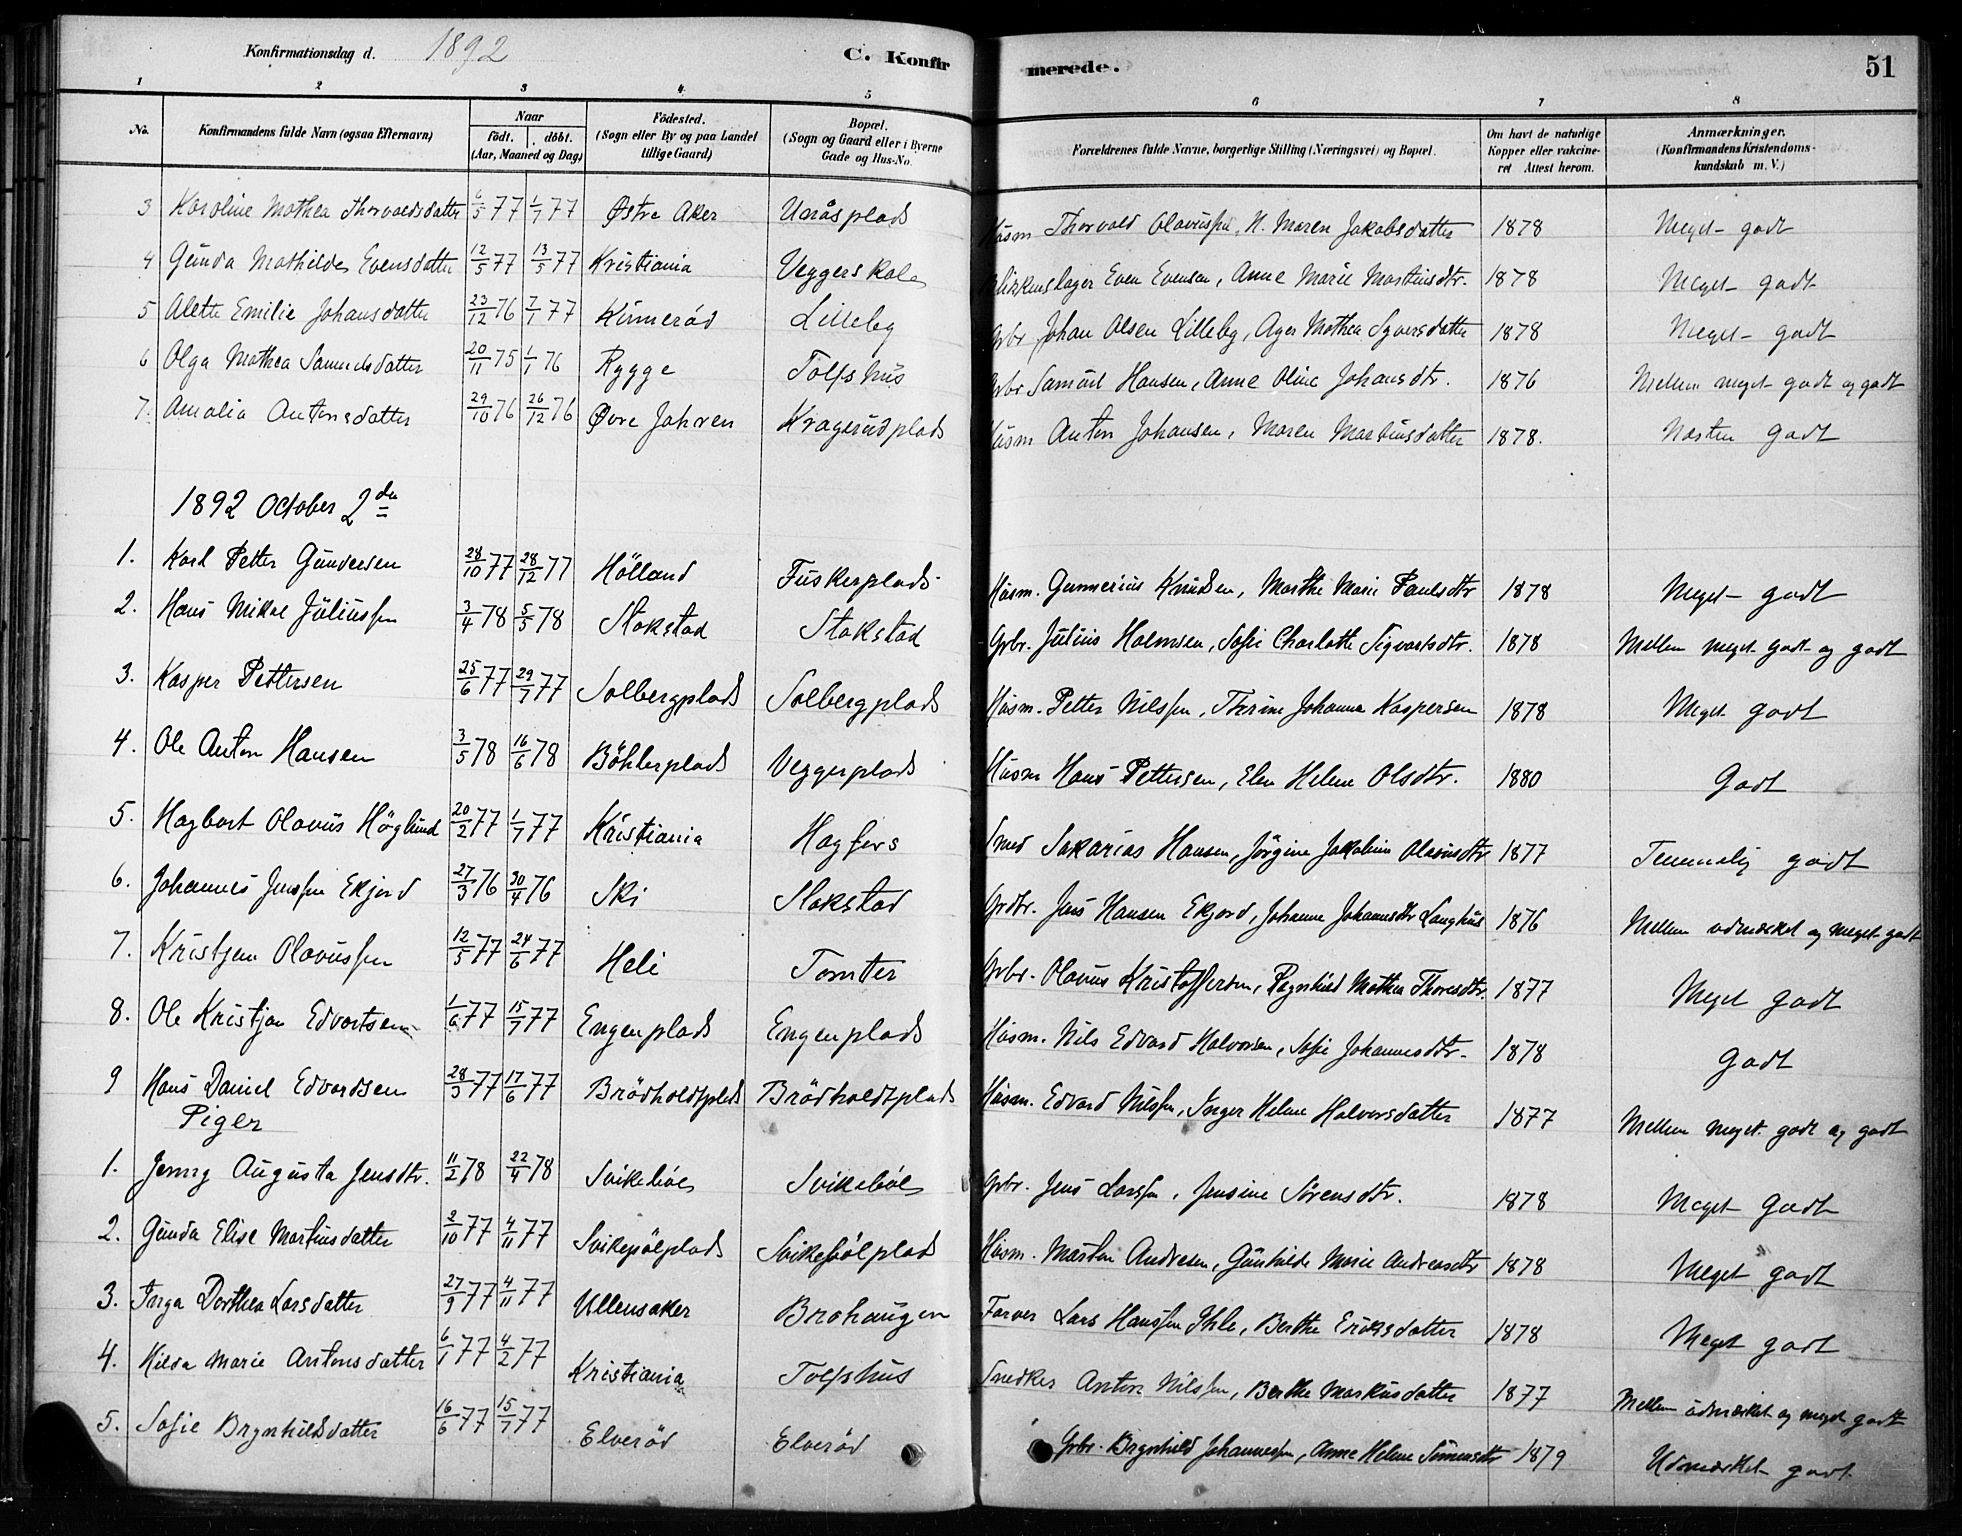 Konfirmationsdag d. 1892 C. Konfirmerede. 51
1 2 3 4 5 6 7 8
No. Konfirmandens fulde Navn (ogsaa Efternavn) Naar födt. döbt. (Aar, Maaned og Dag) Födested. (Sogn eller By og paa Landet tillige Gaard) Bopæl. (Sogn og Gaard eller i Byerne Gade og Hus-No. Forældrenes fulde Navne, borgerlige Stilling (Næringsvei) og Bopæl. Om havt de naturlige Kopper eller vakcineret Attest herom. Anmærkninger. (Konfirmandens Kristendomskundskab m. V.)
3 Karoline Mathea Thorvaldsdatter 6/5 77 1/7 77 Østre Aker Unåsplads Husm Thorvald Olavussen, N. Maren Jakobsdatter 1878 Meget godt
4 Gunda Mathilde Evensdatter 12/5 77 13/5 77 Kristiania Veggerskole Blikkenslager Even Evensen, Anne Marie Martinsdtr. 1878 Meget godt
5 Alette Emilie Johansdatter 23/12 76 7/1 77 Kinnerød Lilleby Grbr Johan Olsen Lilleby, Mathea Syversdatter 1878 Meget godt
6 Olga Mathea Samuelsdatter 20/11 75 1/1 76 Rygge Tolfshus Grbr Samuel Hansen, Anne Oline Johansdtr. 1876 Mellem meget godt og godt
7. Amalia Antonsdatter 29/10 76 26/12 76 Øvre Jahren Kragerudplads Husm Anton Johansen, Maren Martinsdatter 1878. Næsten godt
1892 October 2den
1. Karl Petter Gundersen 28/10 77 28/12 77 Hölland Fuskerplads Husm. Gunnerius Knudsen, Marthe Marie Paulsdtr 1878 Meget godt
2. Hans Mikal Juliussen 3/4 78 5/5 78 Stokstad Stakstad Grbr. Julius Holmsen, Sofie Charlotte Sigvartsdtr. 1878 Mellem meget godt og godt
3. Kasper Pettersen 25/6 77 29/7 77 Solbergplads Solbergplads Husm. Petter Nilssen, Thrine Johanne Kaspersen 1878 Meget godt
4. Ole Anton Hansen 3/5 78 16/6 78 Böhlerplads Veggerplads Husm Hans Pettersen, Elen Helene Olsdtr. 1880 Godt
5. Hagbart Olavus Höglund 20/2 77 1/7 77 Kristiania Hagfors Smed Sakarias Hansen, Jörgine Jakobine Olavusdtr 1877 Temmelig godt
6. Johannes Jenssen Ekjord 27/3 76 30/4 76 Ski Stokstad Grdbr. Jens Hansen Ekjord, Johanne Johannesdtr Langhus 1876 Mellem udmærket og meget godt
7. Kristjan Olavussen 12/5 77 24/6 77 Heli Tomter Grbr. Olavus Kristoffersen, Ragnhild Mathea Thoresdtr. 1877 Meget godt
8. Ole Kristjan Edvartsen 1/6 77 15/7 77 Engenplads Engenplads Husm. Nils Edvard Halvorsen, Sofie Johannesdtr. 1878 Godt
9 Hans Daniel Edvardsen 28/3 77 17/6 77 Brödholdtplads Brödholdtplads Husm. Edvard Nilssen, Inger Helene Halvorsdatter 1877 Mellem meget godt og godt
Piger
1. Jenny Augusta Jensdtr. 11/2 78 22/4 78 Svikeböl Svikeböl Grbr. Jens Larssen, Jensine Sörensdtr. 1878 Meget Godt
2. Gunda Elise Martinsdatter 2/10 77 4/11 77 Svikebölplads Svikebölplads Husm. Martin Andresen, Gunhilde Marie Andreasdtr 1878 Meget godt
3. Inga Dorthea Larsdatter 27/9 77 4/11 77 Ullensaker Brohaugen Farver Lars Hanssen Ihle, Berthe Eriksdatter 1878 Meget godt
4. Hilda Marie Antonsdatter 6/1 77 4/2 77 Kristiania Tolfshus Snedker Anton Nilssen, Berthe Markusdatter 1877 Mellem udmærket og meget godt
5. Sofie Brynhildsdatter 16/6 77 15/7 77 Elveröd Elveröd Grbr. Brynhild Johannessen, Anne Helene Simensdtr 1879 Udmærket godt.